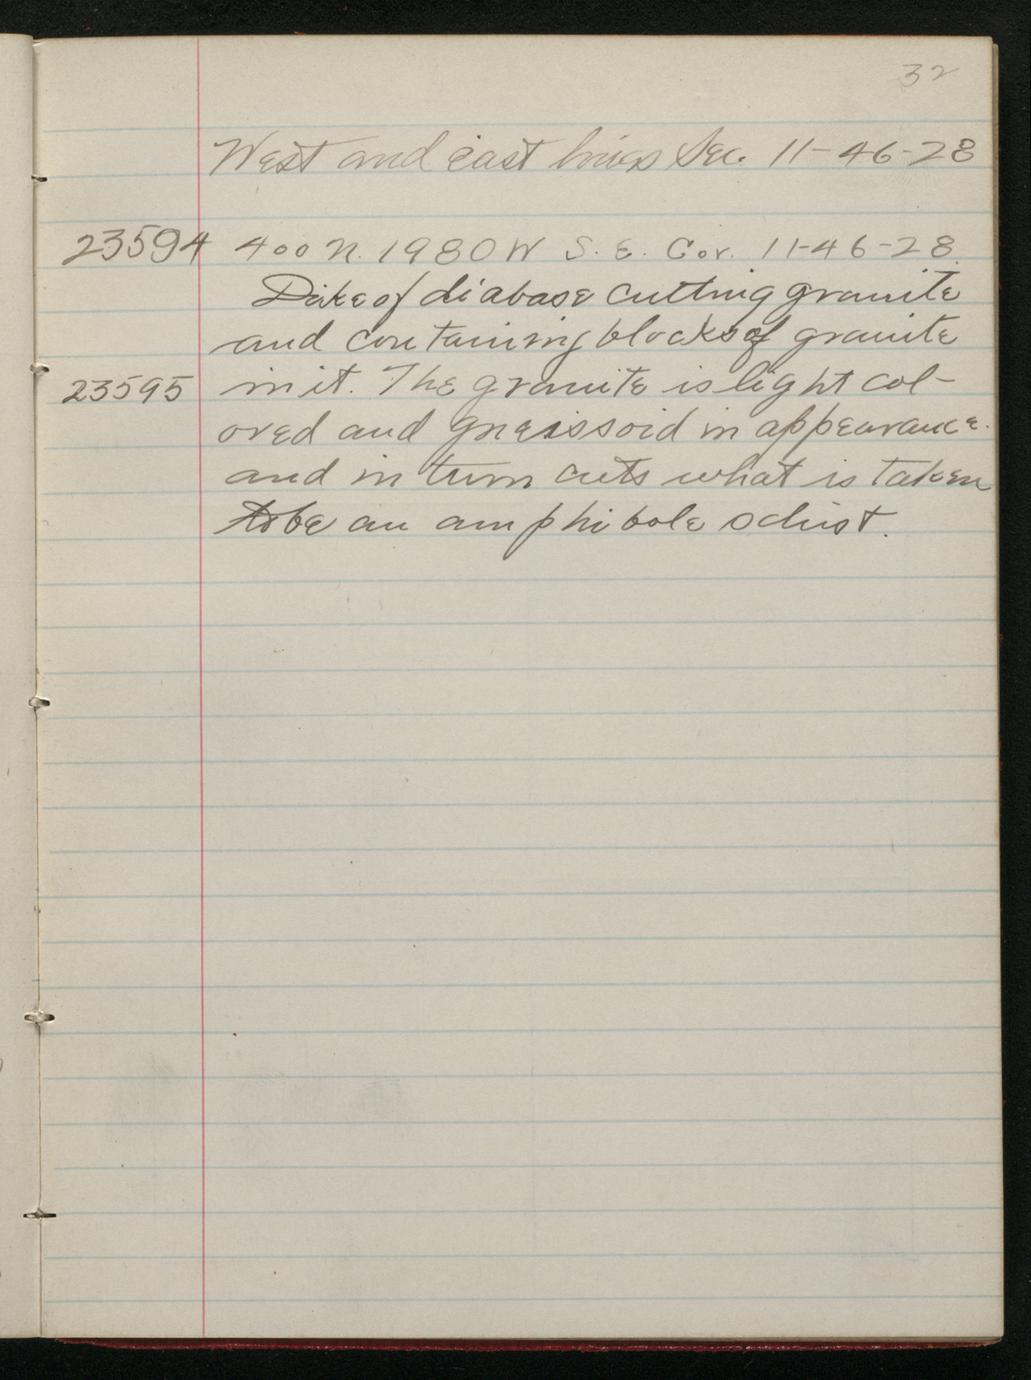 32
West and east lines Sec. 11-46-28
23594 400 N. 1980 W S. E. Cor. 11-46-28.
Dike of diabase cutting granite
and containing blocks of granite
23595 in it. The granite is light col-
ored and gneissoid in appearance.
and in turn cuts what is taken
to be an amphibole schist.